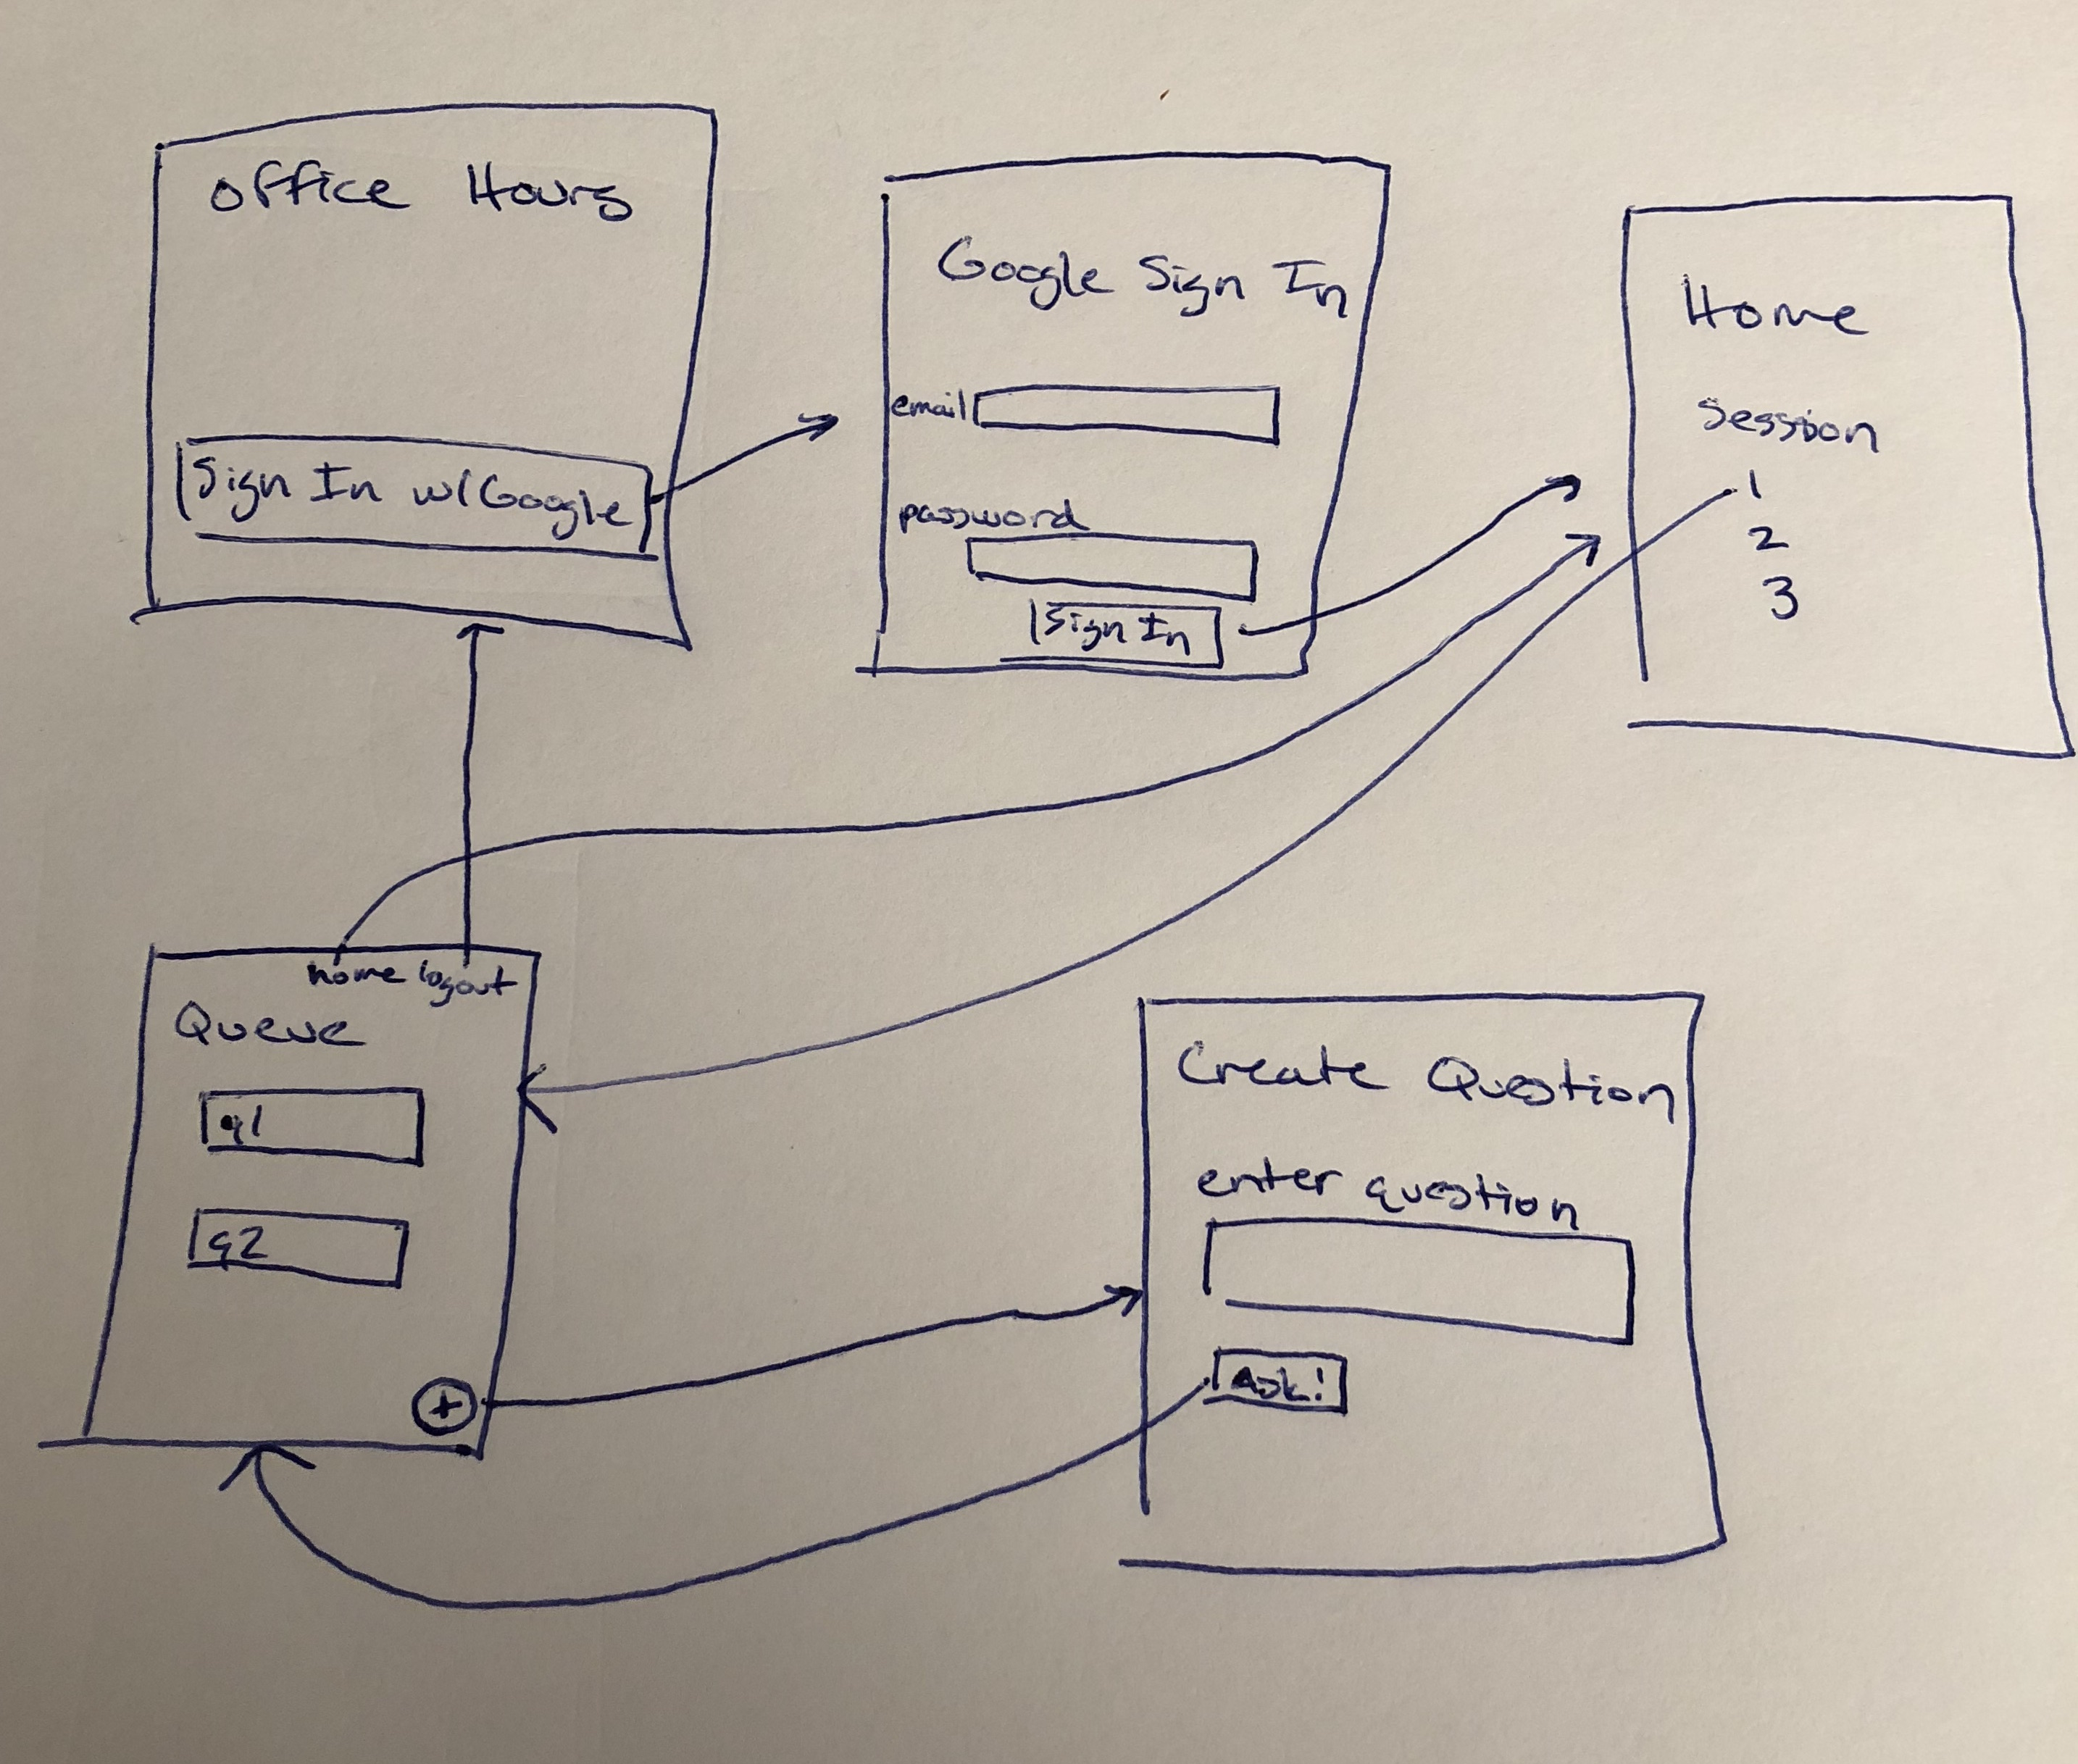 Office Hours
Sign In w/Google
Google Sign In
email
password
Sign In
Home
Session
1
2
3
home logout
Queue
q1
q2
+
Create Question
enter question
Ask!